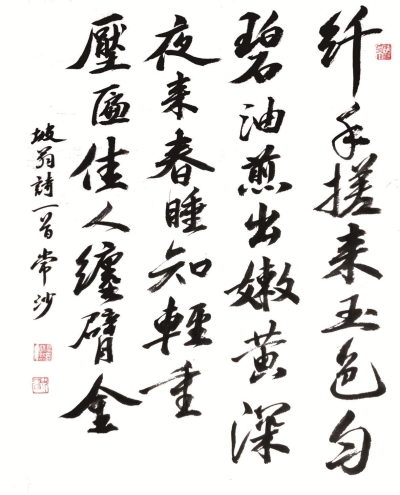 纤手搓来玉色匀
碧油煎出嫩黄深
夜来春睡知輕重
壓匾佳人纏臂金
坡翁詩一首 常沙